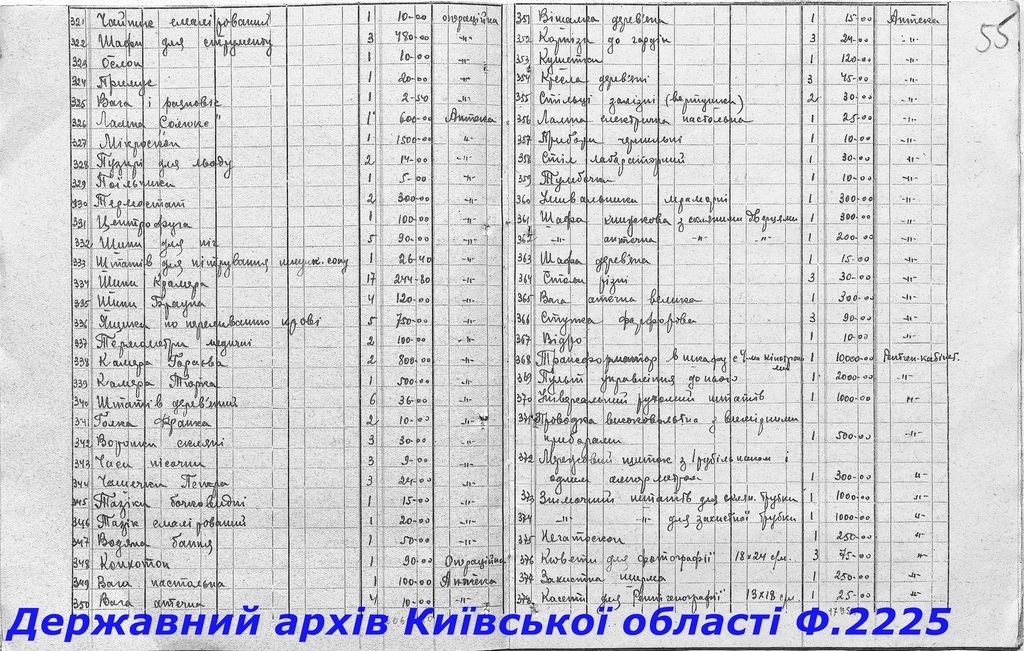 321 Чайник емалірований 1 10-00 операційна
322 Шафи для струменту 3 480-00 -"-
323 Ослон 1 10-00 -"-
324 Примус 1 20-00 -"-
325 Вага і разновіс 1 2-50 -"-
326 Лампа "Солюкс" 1 600-00 Аптека
327 Мікроскоп 1 1500-00 -"-
328 Пузирі для льоду 2 14-00 -"-
329 Поїльники 1 5-00 -"-
330 Термостат 2 300-00 -"-
331 Центрофуга 1 100-00 -"-
332 Шини для ніг 5 90-00 -"-
333 Штатів для тітрування шлунк. соку 1 26-40 -"-
334 Шини Крамера 17 244-80 -"-
335 Шини Брауна 4 120-00 -"-
336 Ящики по переливанню крові 5 750-00 -"-
337 Термометри медичні 2 100-00 -"-
338 Камера Горяєва 2 800-00 -"-
339 Камера Тюрка 1 500-00 -"-
340 Штатів дерев'яний 6 36-00 -"-
341 Голка Франка 2 10-00 -"-
342 Воронки скляні 3 30-00 -"-
343 Часи пісочни 3 9-00 -"-
344 Чашечки Петра 3 24-00 -"-
345 Тазіки бочковидні 1 15-00 -"-
346 Тазік емалірований 1 20-00 -"-
347 Водяна банна 1 50-00 -"-
348 Конхотом 1 90-00 Операційна
349 Вага настольна 1 100-00 Аптека
350 Вага аптечна 4 10-00 -"-
55
351 Вішалка дерев'яна 1 15-00 Аптека
352 Карніза до гардін 3 24-00 -"-
353 Кушетки 1 120-00 -"-
354 Кресла дерев'яні 3 45-00 -"-
355 Стільці залізні (вертушка) 2 30-00 -"-
356 Лампа електрична настольна 1 25-00 -"-
357 Прибори чернильні 1 10-00 -"-
358 Стіл лабараторний 1 30-00 -"-
359 Тумбочка 1 10-00 -"-
360 Умивальники мрамарні 1 300-00 -"-
361 Шафа книжкова з скляними дверцями 1 300-00 -"-
362 -"- аптечна -"- -"- 1 200-00 -"-
363 Шафа дерев'яна 1 15-00 -"-
364 Столи різні 3 30-00 -"-
365 Вага аптечна велика 1 300-00 -"-
366 Ступка фарфорова 3 90-00 -"-
367 Відро 1 10-00 -"-
368 Трансформатор в шкафу с 4-ма кінотронами 1 10000-00 Рентген-кабінет.
369 Пульт управління до нього 1 2000-00 -"-
370 Універсальний рухомий штатів 1 1000-00 -"-
371 Проводка високовольтна з вимірними
приборами 1 500-00 -"-
372 Мережовий щиток з 1 рубільником і
одним амперметром 1 300-00 -"-
373 Знімочний штатів для склян. трубки 1 1000-00 -"-
374 -"- -"- для захистної трубки 1 1000-00 -"-
375 Негатоскоп 1 250-00 -"-
376 Кювети для фотографії 18×24 см. 3 75-00 -"-
377 Захистна ширма 1 250-00 -"-
378 Касети для Рентгенографії 13×18 см 1 25-00 -"-
Державний архів Київської області Ф.2225